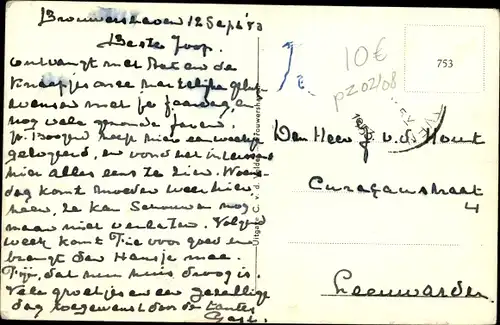 Brouwershaven 12 Sept '53
Beste Joop.
Ontvangt met Bet en de
knaapjes onze hartelijke geluk
wensen met je jaardag, en
nog vele gezonde jaren.
J. Boogerd heeft hier een weekje
gelogeerd, en vond het interessant
hier alles eens te zien. Woens-
dag komt moeder weer hier
heen, ze kan Schouwen nog
maar niet verlaten. Volgend
week komt Tie voor goed en
brengt dan Hansje mee.
Fijn, dat hun huis droog is.
Vele groetjes en een gezellige
dag toegewenst door de tantes
Uitgave C. v. d. Brouwershaven
10€
PZ02/08
753
Den Heer J. v. d. Hout
Curaçaostraat
4
Leeuwarden